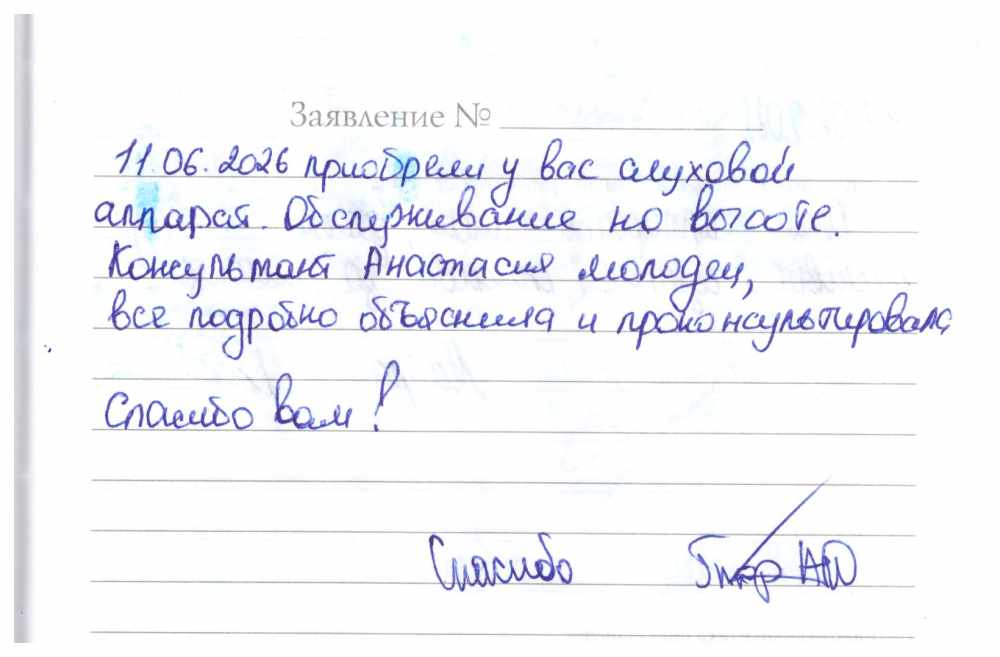 Заявление №
11.06.2026 приобрели у вас слуховой
аппарат. Обслуживание на высоте.
Консультант Анастасия молодец,
все подробно объяснила и проконсультировала
Спасибо вам!
Спасибо